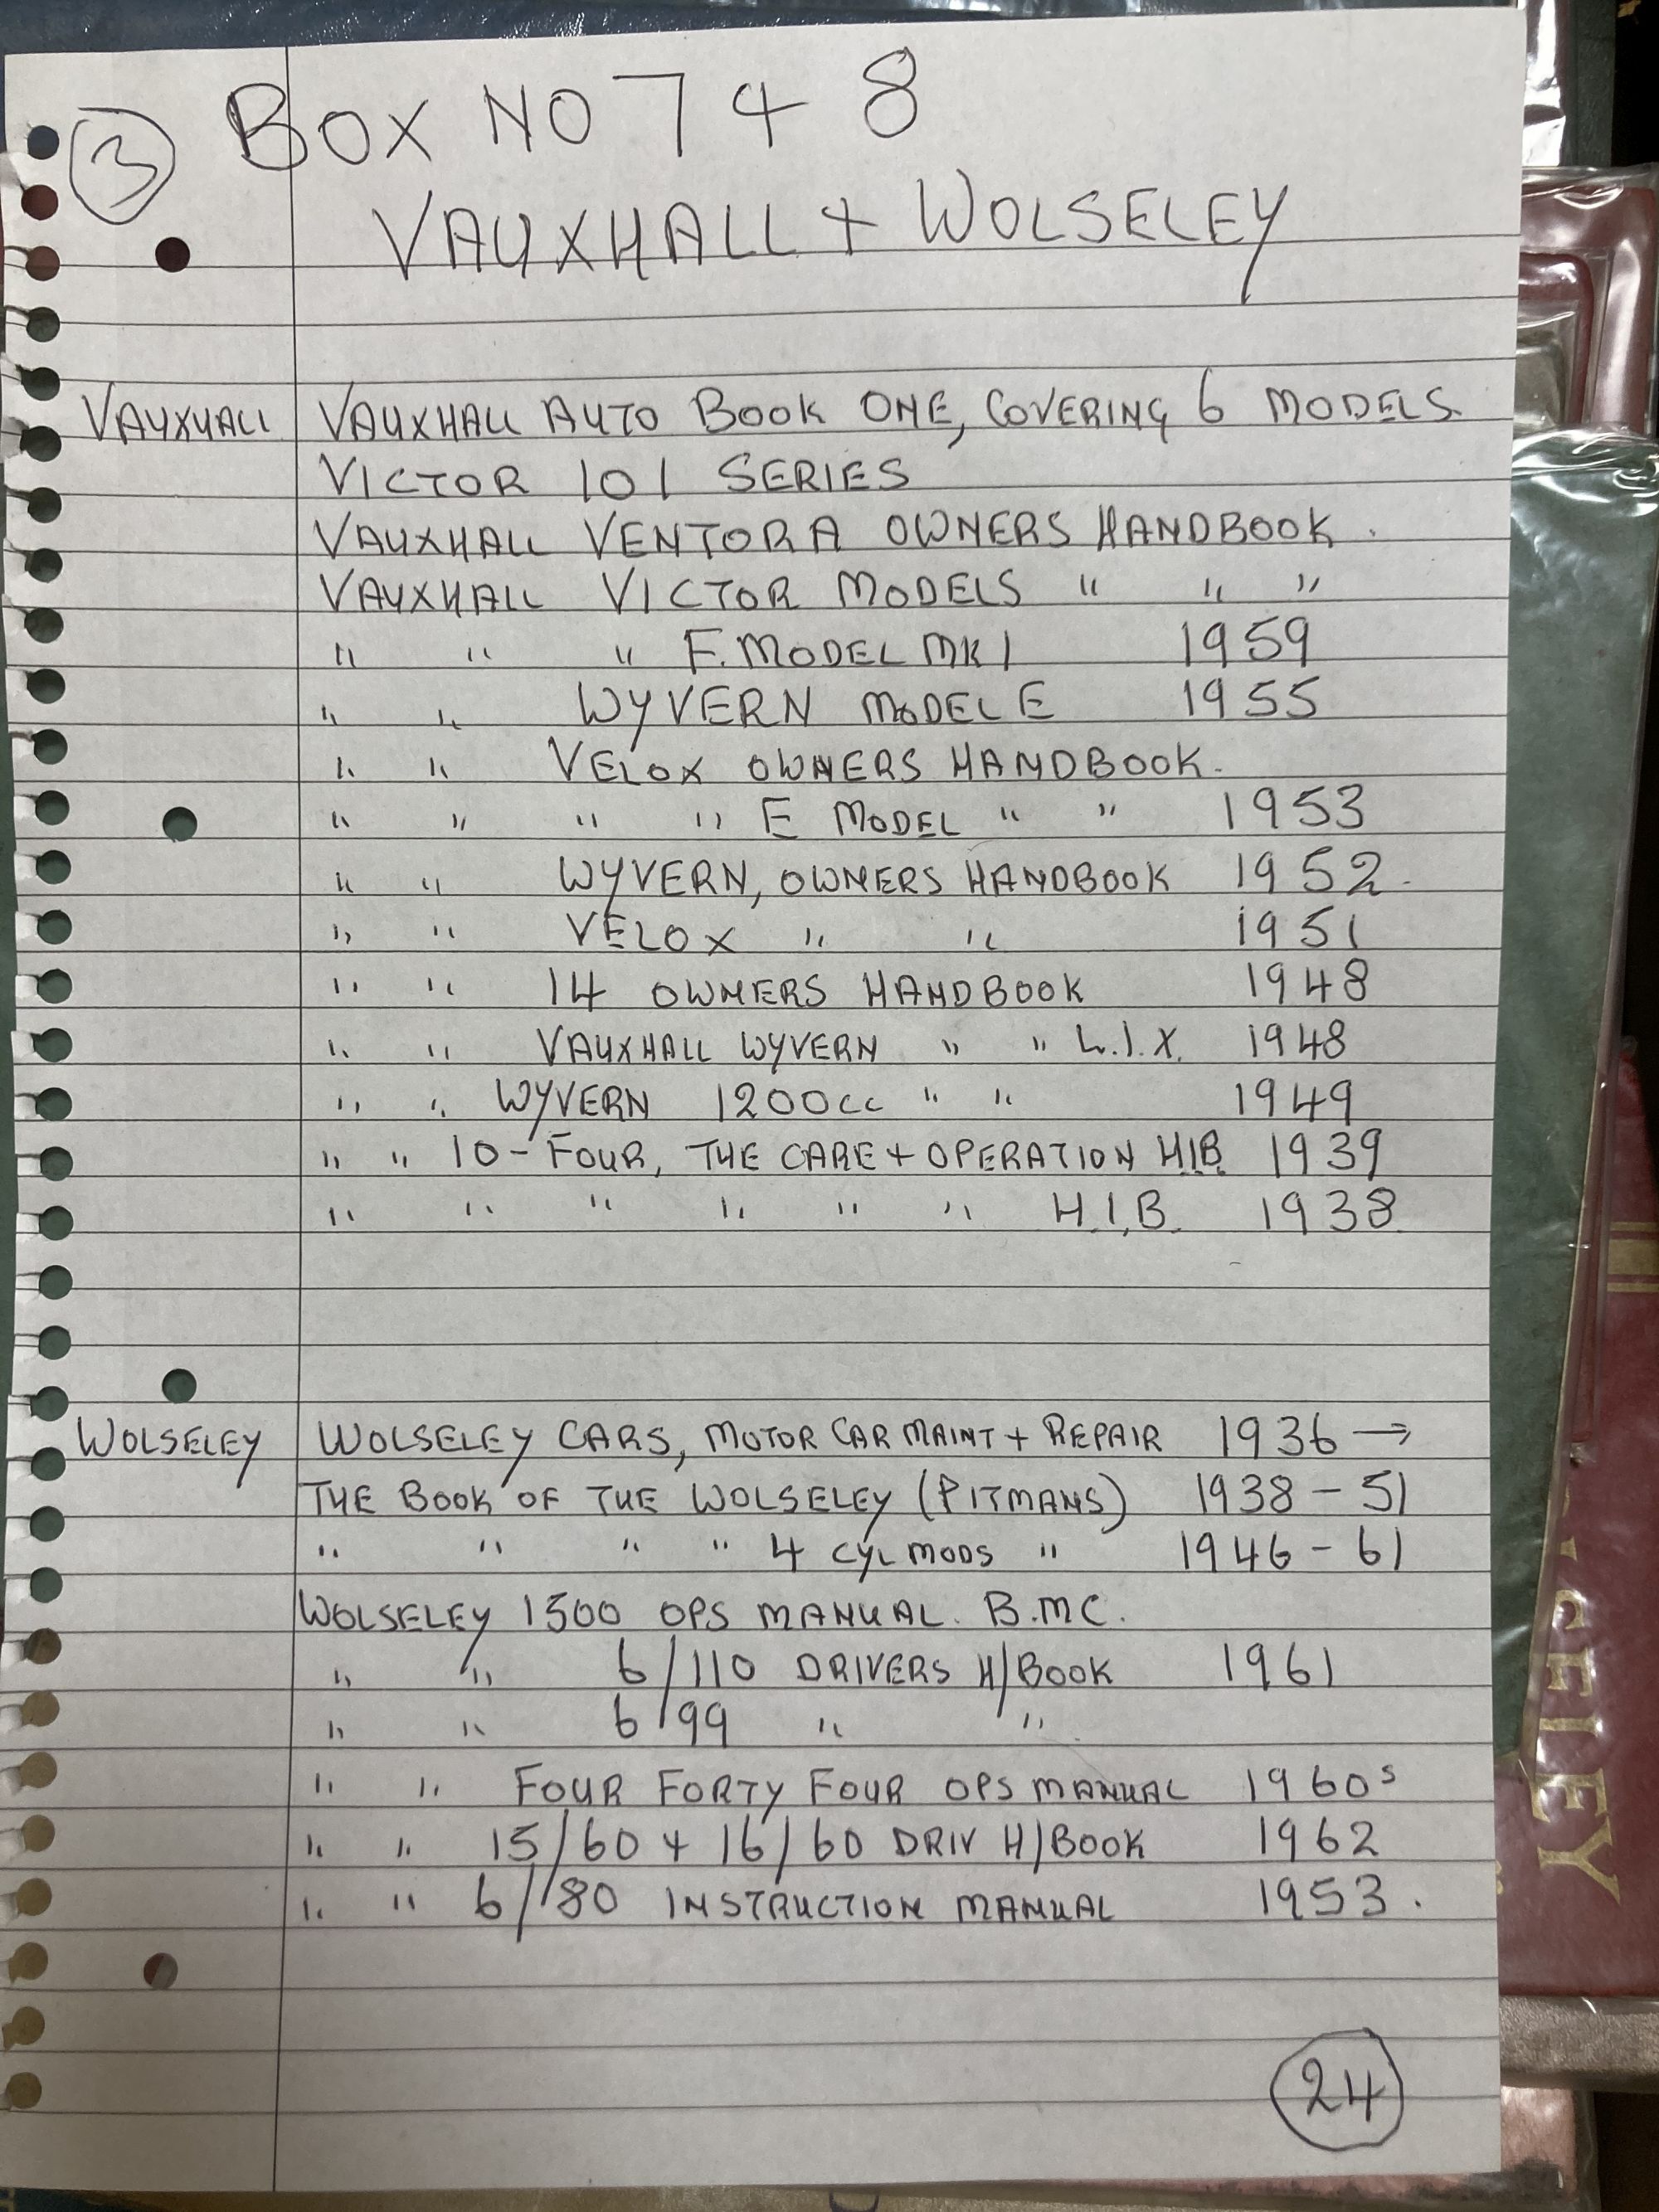 3 BOX NO 7 + 8
VAUXHALL + WOLSELEY
VAUXHALL VAUXHALL AUTO BOOK ONE, COVERING 6 MODELS.
VICTOR 101 SERIES
VAUXHALL VENTORA OWNERS HANDBOOK.
VAUXHALL VICTOR MODELS " " "
" " " F. MODEL MK 1 1959
" " WYVERN MODEL E 1955
" " VELOX OWNERS HANDBOOK.
" " " " E MODEL " " 1953
" " WYVERN, OWNERS HANDBOOK 1952.
" " VELOX " " 1951
" " 14 OWNERS HANDBOOK 1948
" " VAUXHALL WYVERN " " L.I.X. 1948
" " WYVERN 1200cc " " 1949
" " 10-FOUR, THE CARE + OPERATION H.I.B. 1939
" " " " " " H.I.B. 1938
WOLSELEY WOLSELEY CARS, MOTOR CAR MAINT + REPAIR 1936 →
THE BOOK OF THE WOLSELEY (PITMANS) 1938 - 51
" " " " 4 CYL MODS " 1946 - 61
WOLSELEY 1500 OPS MANUAL. B.M.C.
" " 6/110 DRIVERS H/BOOK 1961
" " 6/99 " "
" " FOUR FORTY FOUR OPS MANUAL 1960s
" " 15/60 + 16/60 DRIV H/BOOK 1962
" " 6/80 INSTRUCTION MANUAL 1953.
24